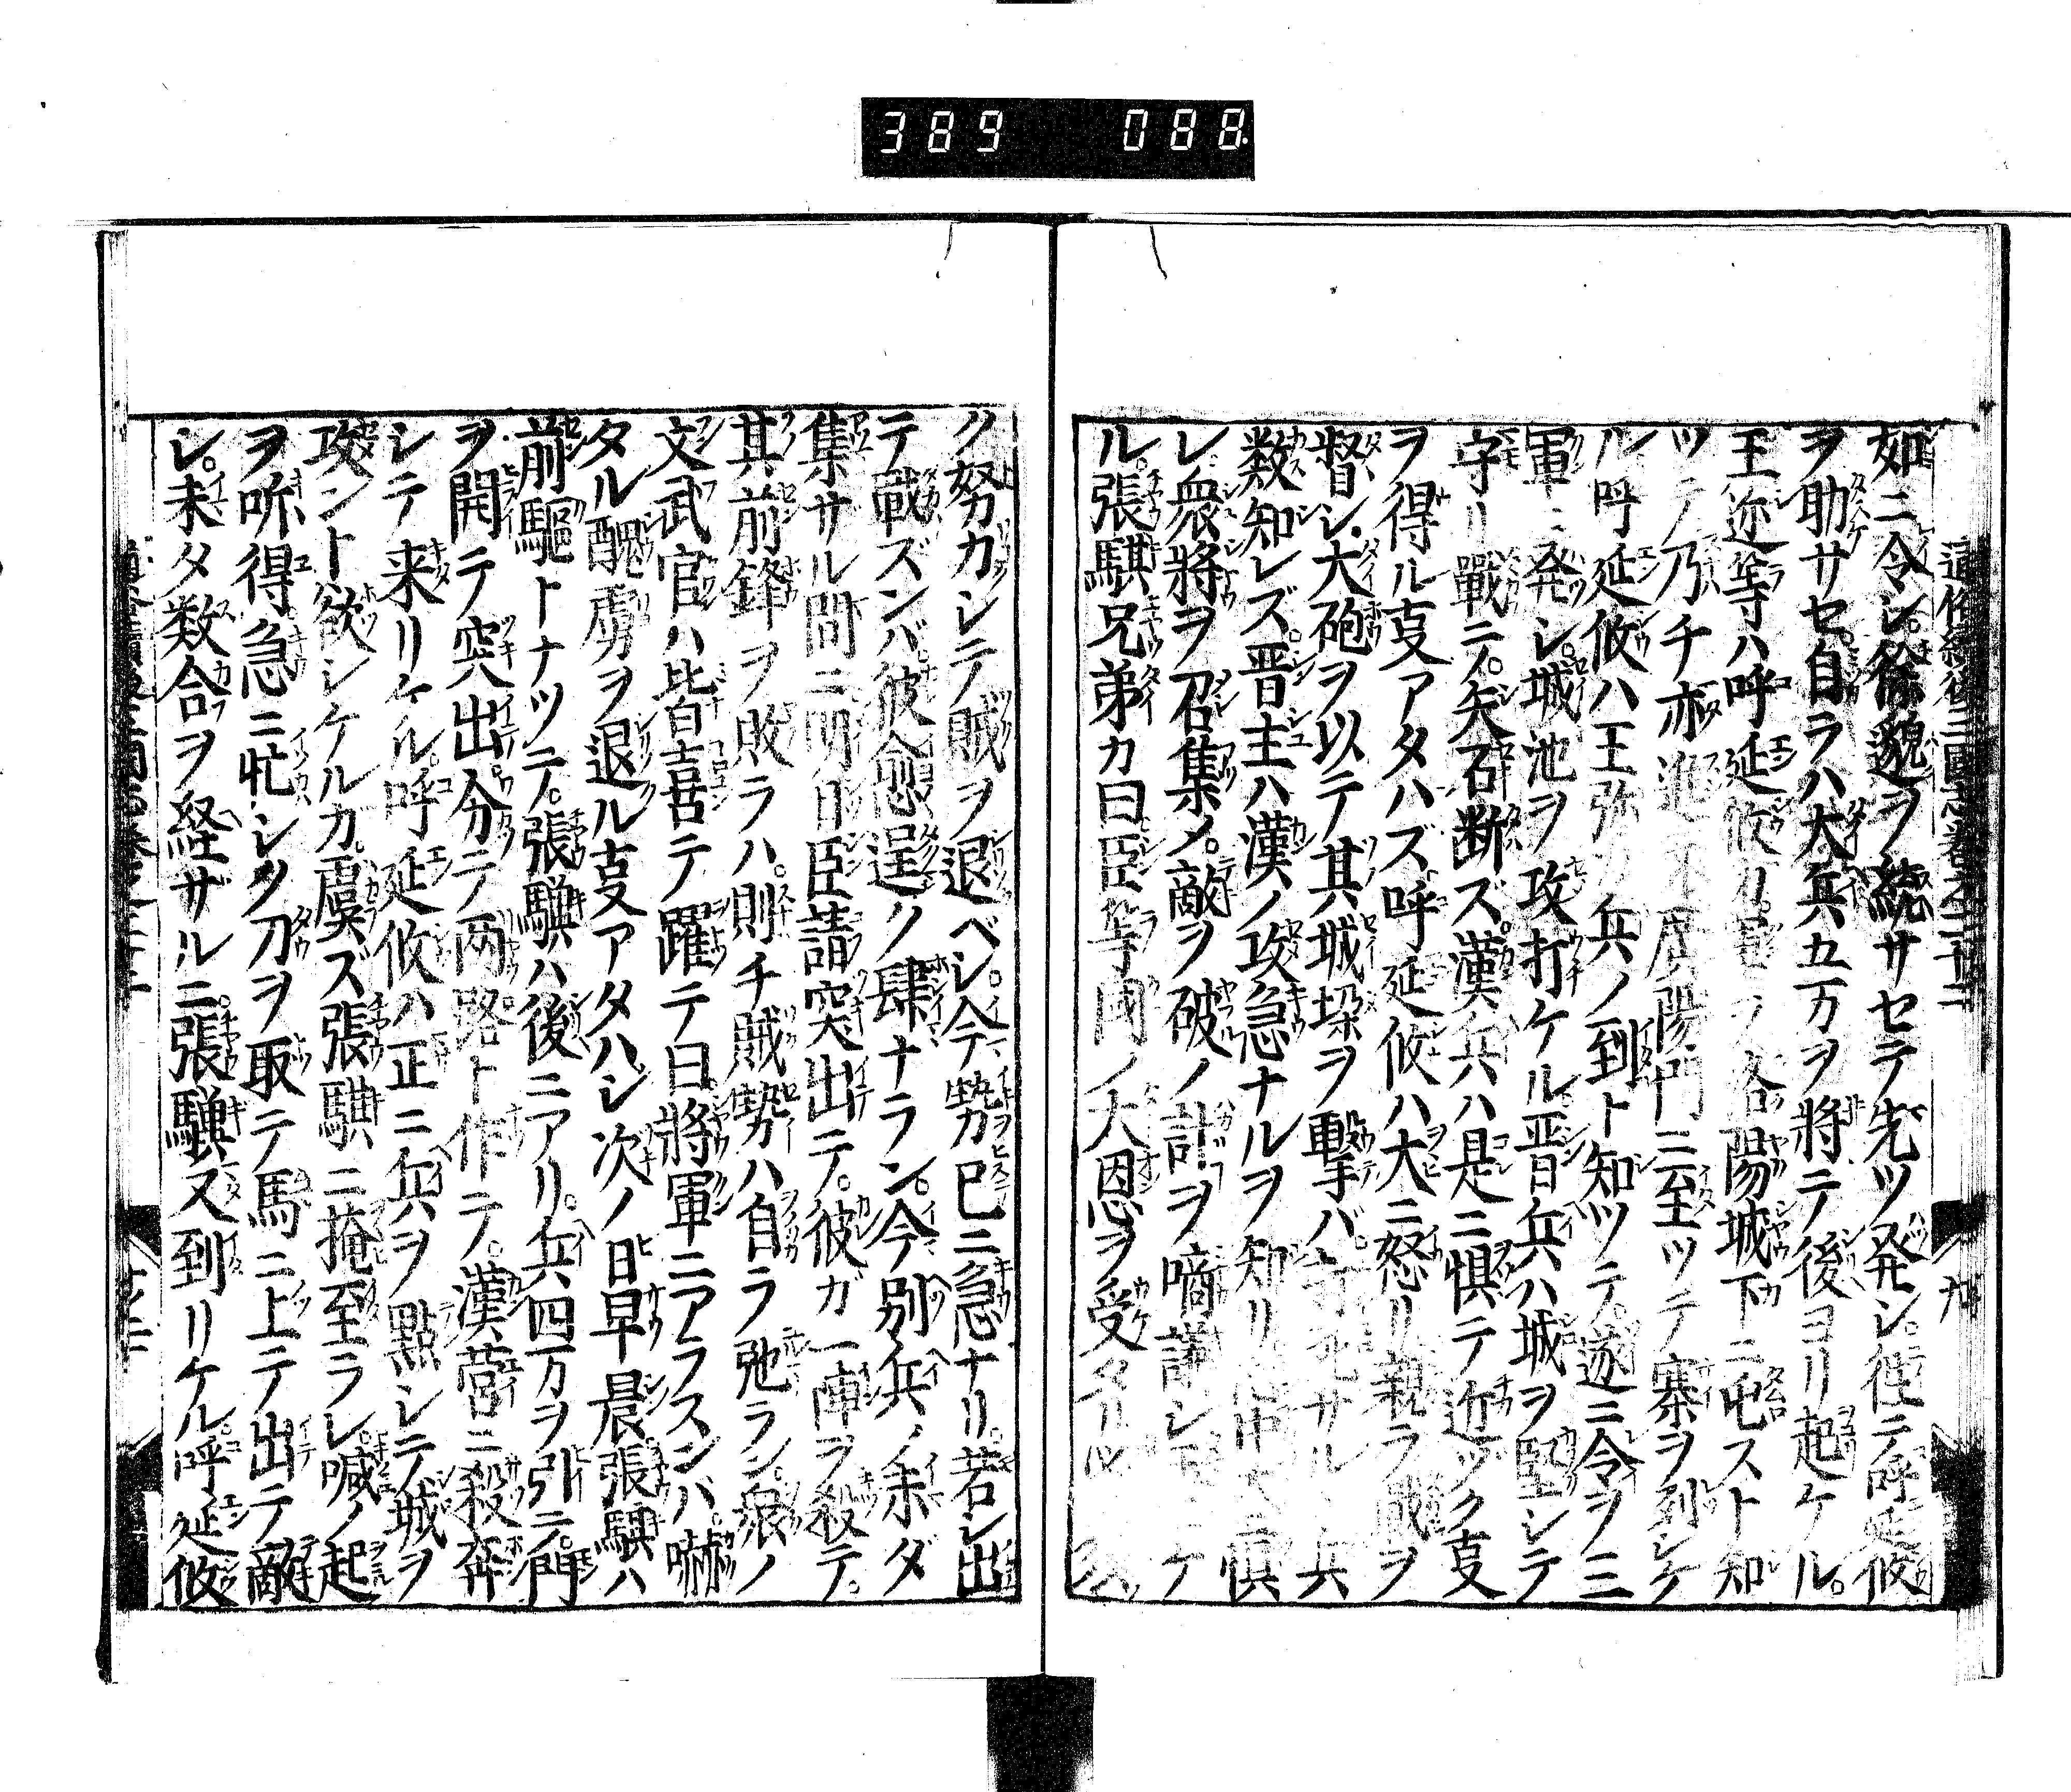 389 088
通俗續後三國志卷之二十二
如ニ令シ。徐邈ヲ統サセテ先ツ発シ。徃テ呼延攸
ヲ助サセ。自ラハ大兵五万ヲ將テ後ヨリ起ケル。
王迩等ハ呼延攸カ洛陽城下ニ屯スト知
ツテ乃チ亦進 廣陽門ニ至ツテ寨ヲ列シケ
ル呼延攸ハ王弥カ兵ノ到ト知ツテ。遂ニ令ヲ三
軍ニ発シ。城池ヲ攻打ケル。晋兵ハ城ヲ堅シテ
守リ戰ニ。矢石断ズ。漢兵ハ是ニ惧テ近ツク支
ヲ得ル支アタハズ呼延攸ハ大ニ怒リ親ラ戰ヲ
督シ。大砲ヲ以テ其城垜ヲ擊バ。 サル 兵
数知レズ。晋主ハ漢ノ攻急ナルヲ知リ 惧
レ。衆將ヲ召集メ。敵ヲ破ノ計ヲ商議シ ケ
ル。張騏兄弟カ曰臣等國ノ大恩ヲ受タル
九
ク努力シテ賊ヲ退ベシ。今勢已ニ急ナリ。若シ出
テ戰ズンバ彼愈逞ク肆ナラン。今別兵ノ未ダ
集サル間ニ明日臣請突出テ。彼ガ一陣ヲ殺テ。
其前鋒ヲ敗ラハ。則チ賊勢ハ自ラ弛ラン。衆ノ
文武官ハ皆喜テ躍テ曰將軍ニアラスンバ。嚇
タル醜虜ヲ退ル支アタハシ次ノ日早晨張騏ハ
前驅トナツテ。張驥ハ後ニアリ。兵四万ヲ引ニ。門
ヲ開テ突出分テ両路ト作テ。漢営ニ殺奔
シテ来リケル。呼延攸ハ正ニ兵ヲ點シテ城ヲ
攻ント欲シケルカ。虞ズ張騏ニ掩至ラレ。喊ノ起
ヲ听得。急ニ忙シク刀ヲ取テ馬ニ上テ出テ敵
シ。未タ数合ヲ経サルニ。張驥又到リケル。呼延攸